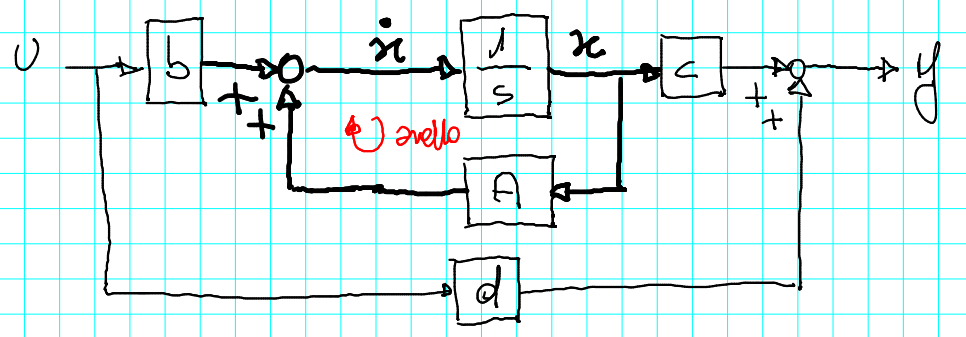 u b + + ẋ 1/s x c + + y
anello
A
d